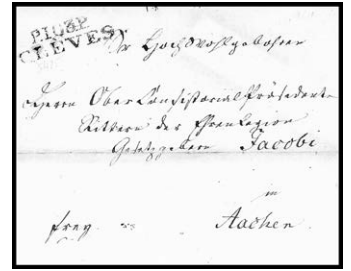 P.102.P.
CLEVES
Sr Hochwohlgebohren
Herrn Ober Consistorial Präsidenten
Rittern der Ehrenlegion
Gesetzgebern Jacobi
in
frey Aachen